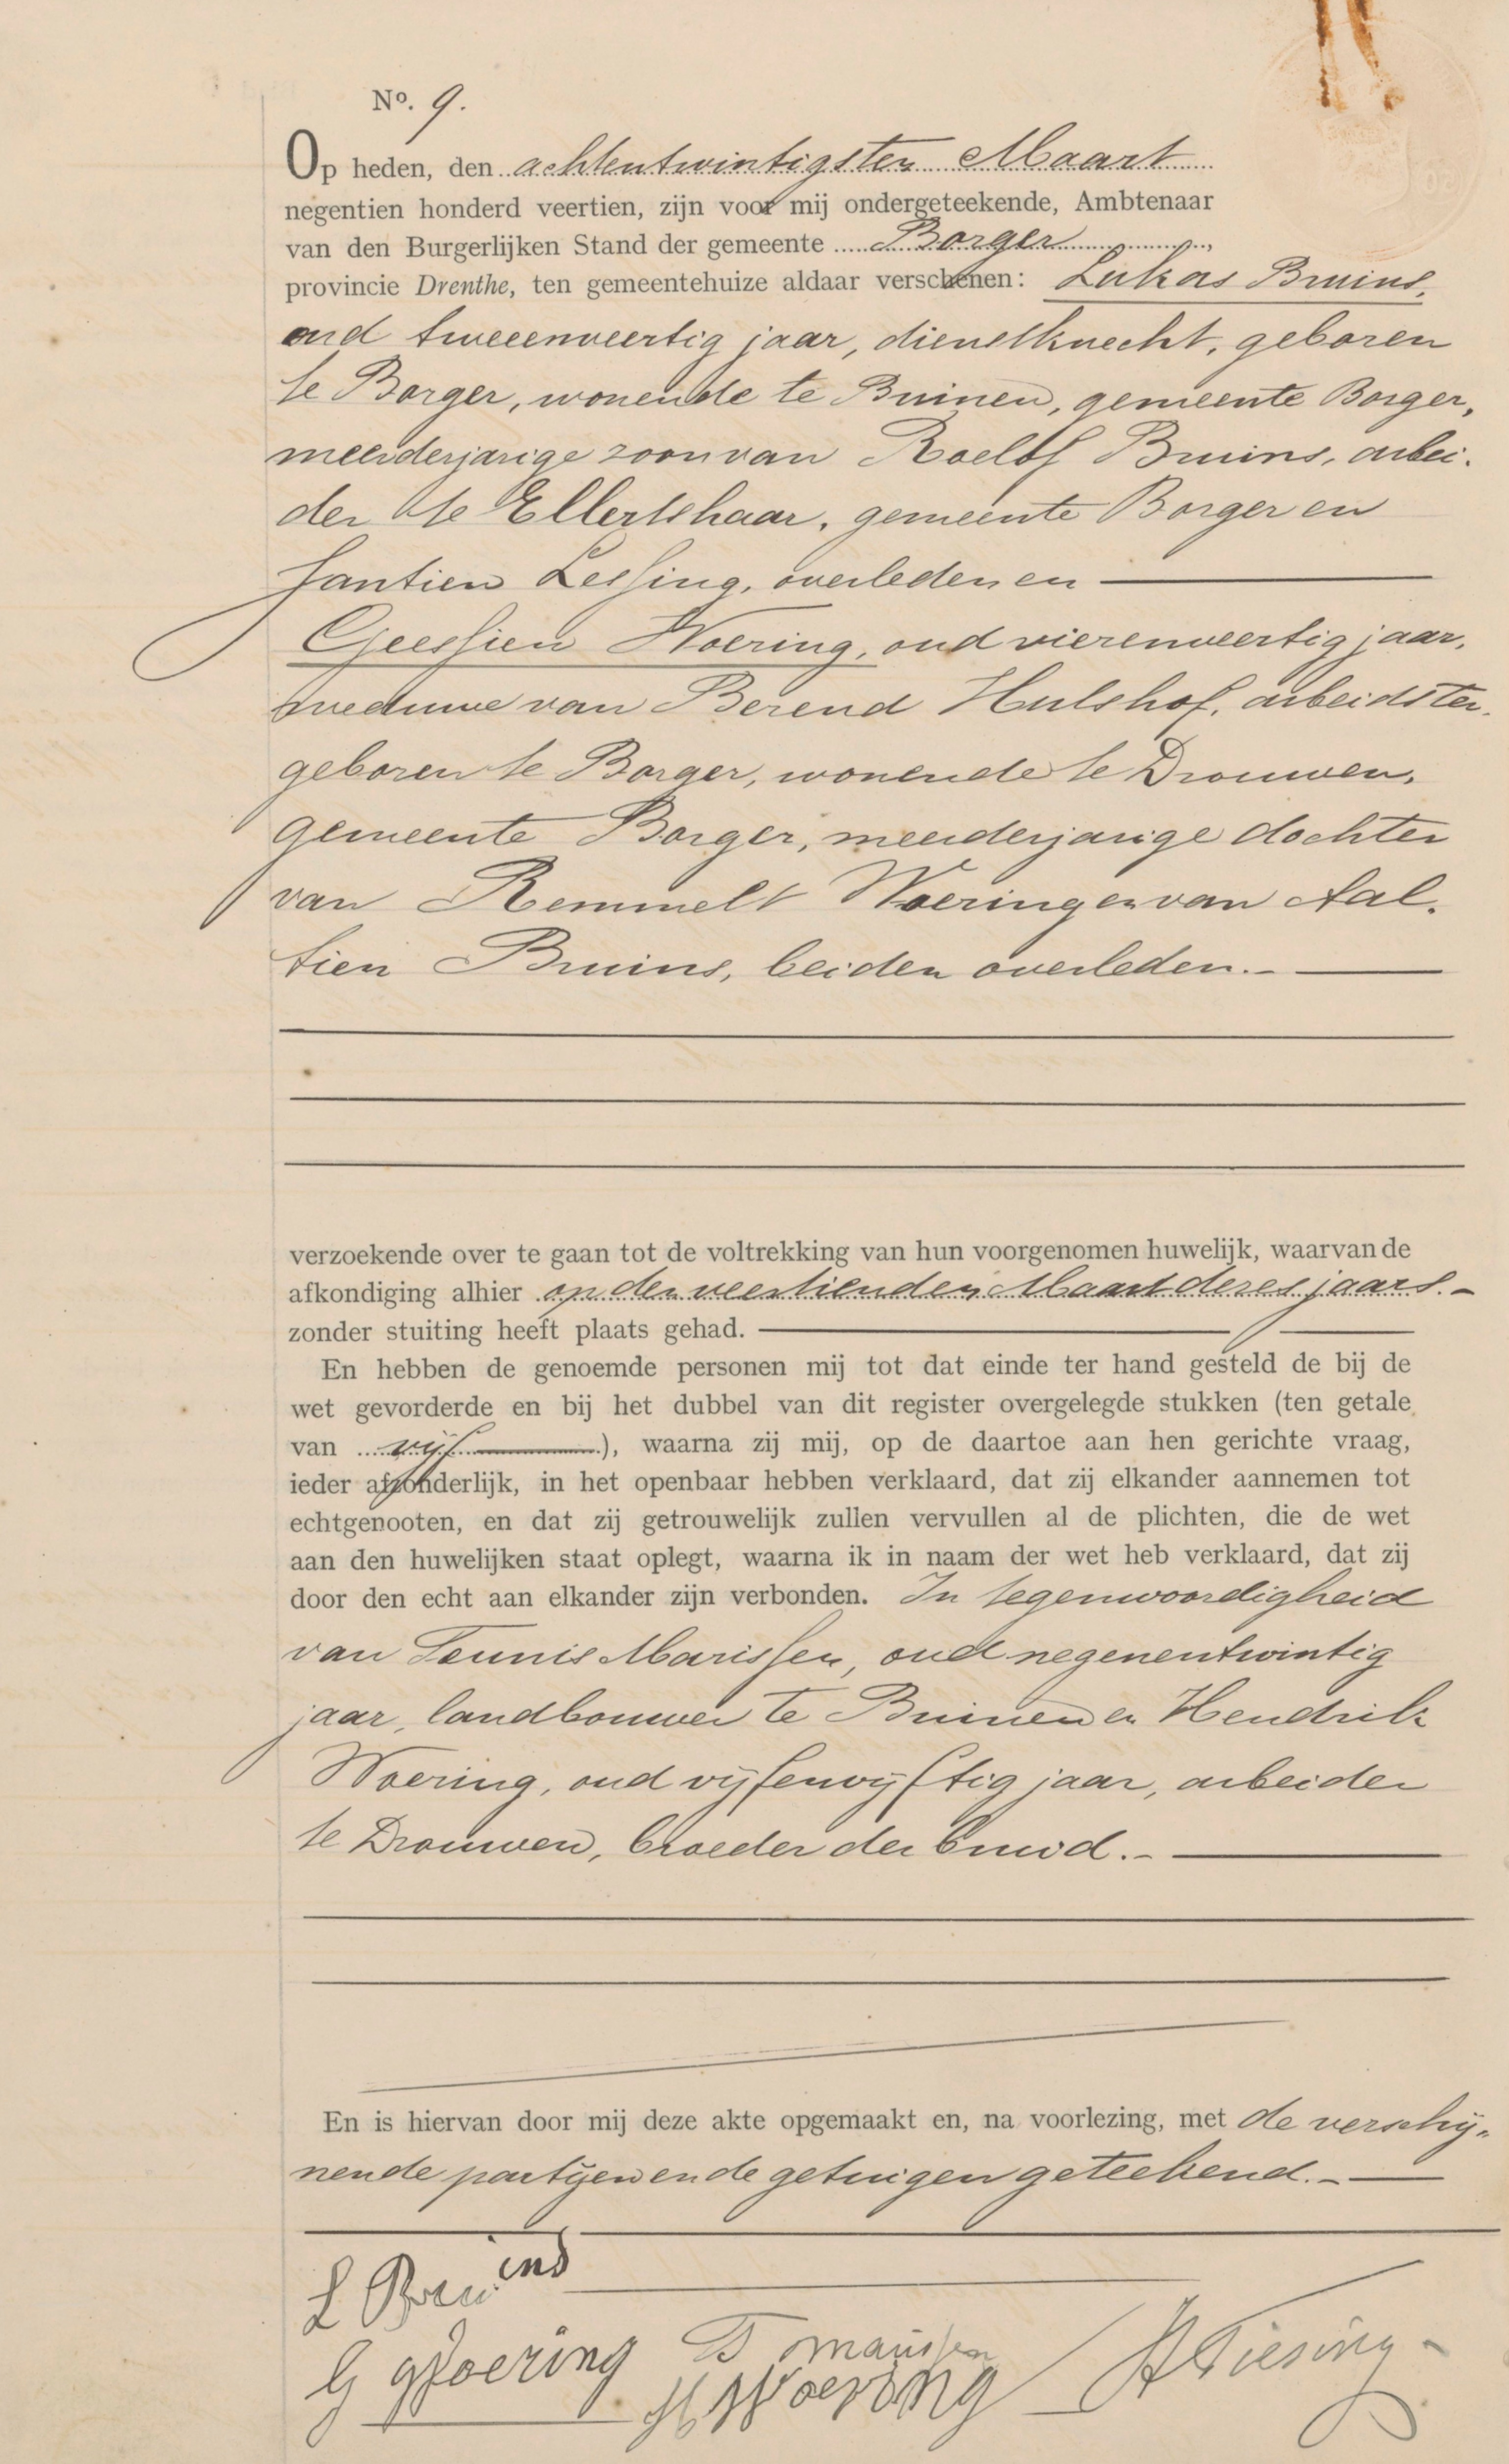 Nº. 9.
Op heden, den achtentwintigsten Maart
negentien honderd veertien, zijn voor mij ondergeteekende, Ambtenaar
van den Burgerlijken Stand der gemeente Borger,
provincie Drenthe, ten gemeentehuize aldaar verschenen: Lukas Bruins,
oud tweeenveertig jaar, dienstknecht, geboren
te Borger, wonende te Buinen, gemeente Borger,
meerderjarige zoon van Roelof Bruins, arbei-
der te Ellertshaar, gemeente Borger en
Jantien Lessing, overleden en
Geessien Woering, oud vierenveertig jaar,
weduwe van Berend Hulshof, arbeidster,
geboren te Borger, wonende te Drouwen,
gemeente Borger, meerderjarige dochter
van Remmelt Woering en van Aal-
tien Bruins, beiden overleden.-
verzoekende over te gaan tot de voltrekking van hun voorgenomen huwelijk, waarvan de
afkondiging alhier op den veertienden Maart dezes jaars.-
zonder stuiting heeft plaats gehad.
En hebben de genoemde personen mij tot dat einde ter hand gesteld de bij de
wet gevorderde en bij het dubbel van dit register overgelegde stukken (ten getale
van vijf), waarna zij mij, op de daartoe aan hen gerichte vraag,
ieder afzonderlijk, in het openbaar hebben verklaard, dat zij elkander aannemen tot
echtgenooten, en dat zij getrouwelijk zullen vervullen al de plichten, die de wet
aan den huwelijken staat oplegt, waarna ik in naam der wet heb verklaard, dat zij
door den echt aan elkander zijn verbonden. In tegenwoordigheid
van Teunis Marissen, oud negenentwintig
jaar, landbouwer te Buinen en Hendrik
Woering, oud vijfenvijftig jaar, arbeider
te Drouwen, broeder der bruid.-
En is hiervan door mij deze akte opgemaakt en, na voorlezing, met de verschij-
nende partijen en de getuigen geteekend.-
L Bruins
G Woering T Marissen
H Woering HTiesing